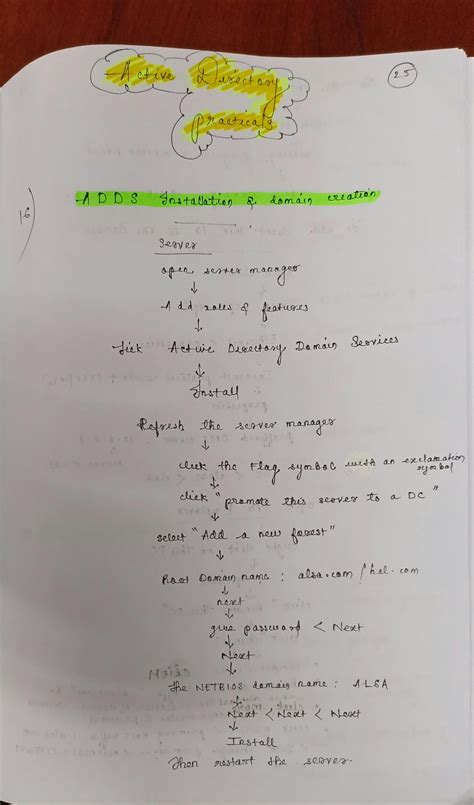 Active Directory
practicals
25
16)
ADDS Installation & domain creation
Server
open server manager
↓
Add roles & features
↓
Tick Active Directory Domain Services
↓
Install
↓
Refresh the server manager
↓
click the Flag symbol with an exclamation symbol
↓
click "promote this server to a DC"
↓
select "Add a new forest"
↓
Root Domain name : alsa.com / hcl.com
↓
next
↓
give password < Next
↓
Next
↓
The NETBIOS domain name : ALSA
↓
Next < Next < Next
↓
Install
Then restart the server.